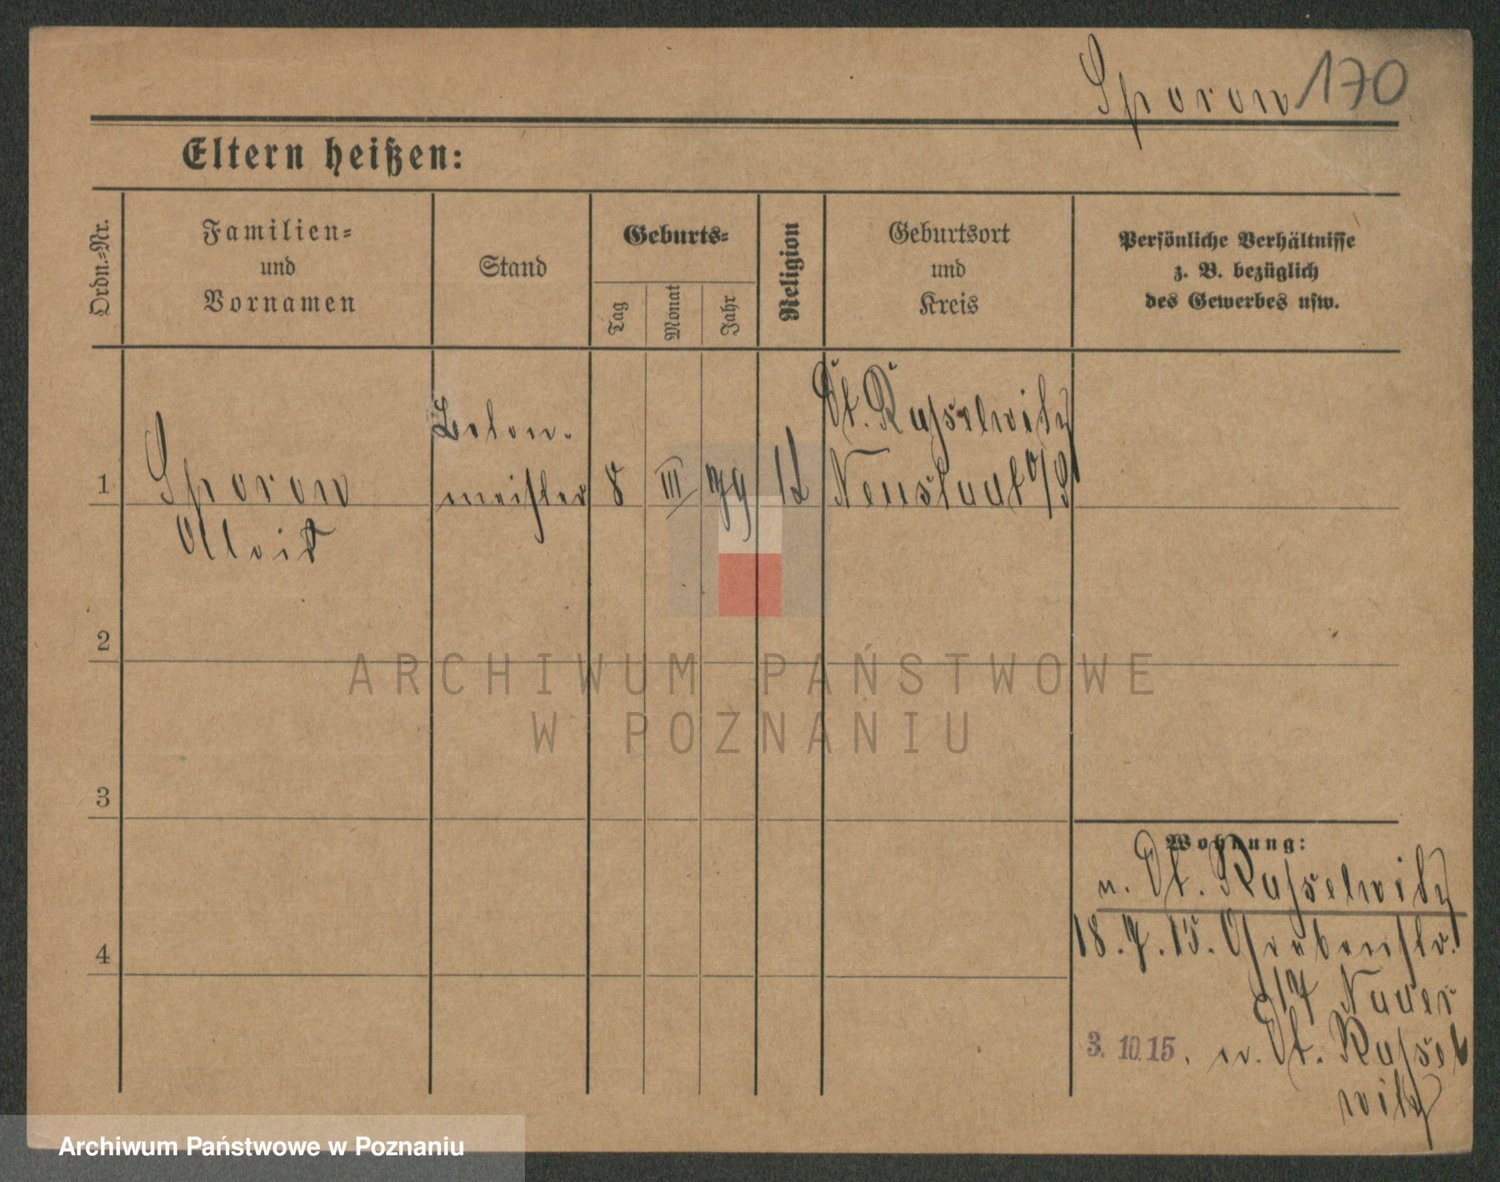 Sporow 170
Eltern heißen:
Ordn.-Nr.
Familien-
und
Vornamen
Stand
Geburts-
Tag
Monat
Jahr
Religion
Geburtsort
und
Kreis
Persönliche Verhältnisse
z. B. bezüglich
des Gewerbes usw.
1
Sporow
Alois
meister
8
III
79
Dt. Rasselwitz
Neustadt O/S
2
3
4
Wohnung:
n. Dt. Rasselwitz
18.7.15. Grabenstr.
17
3. 10. 15. Dt. Rassel
witz
ARCHIWUM PAŃSTWOWE
W POZNANIU
Archiwum Państwowe w Poznaniu